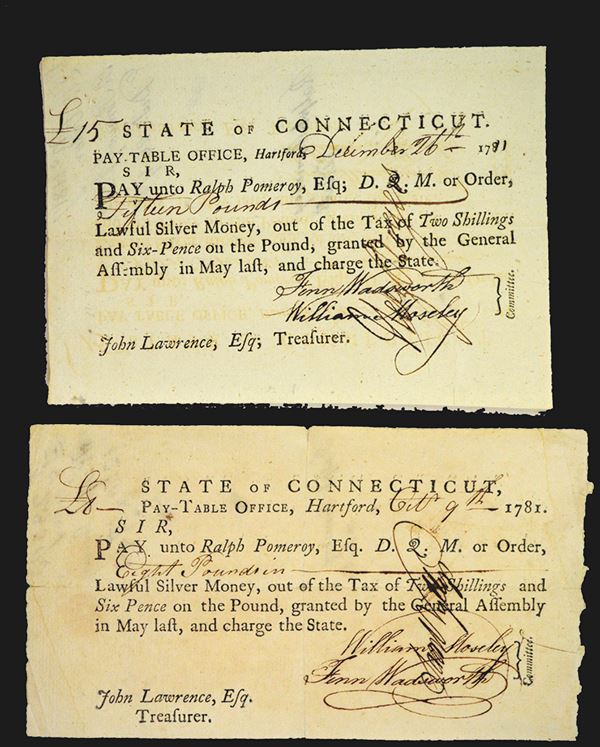 £15 STATE OF CONNECTICUT.
PAY-TABLE OFFICE, Hartford, December 26th 1781
SIR,
PAY unto Ralph Pomeroy, Esq; D. Q. M. or Order,
Fifteen Pounds
Lawful Silver Money, out of the Tax of Two Shillings
and Six-Pence on the Pound, granted by the General
Aſſ:mbly in May laſt, and charge the State.
Fenn Wadsworth
William Moseley
Committee.
John Lawrence, Eſq; Treaſurer.
£8 STATE OF CONNECTICUT,
PAY-TABLE OFFICE, Hartford, Octr 9th 1781.
SIR,
PAY unto Ralph Pomeroy, Eſq. D. Q. M. or Order,
Eight Pounds in
Lawful Silver Money, out of the Tax of Two Shillings and
Six Pence on the Pound, granted by the General Aſſembly
in May laſt, and charge the State.
William Moseley
Fenn Wadsworth
Committee.
John Lawrence, Eſq.
Treaſurer.